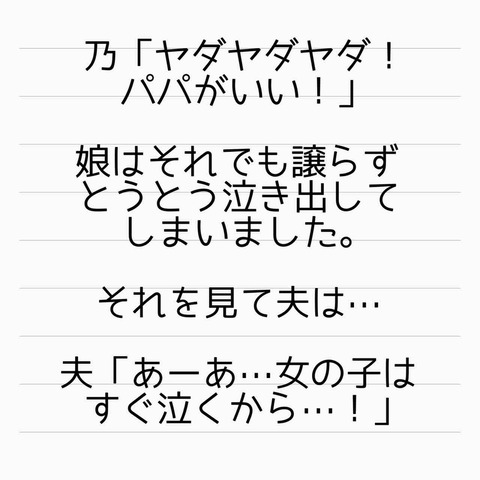 乃「ヤダヤダヤダ！
パパがいい！」
娘はそれでも譲らず
とうとう泣き出して
しまいました。
それを見て夫は…
夫「あーあ…女の子は
すぐ泣くから…！」